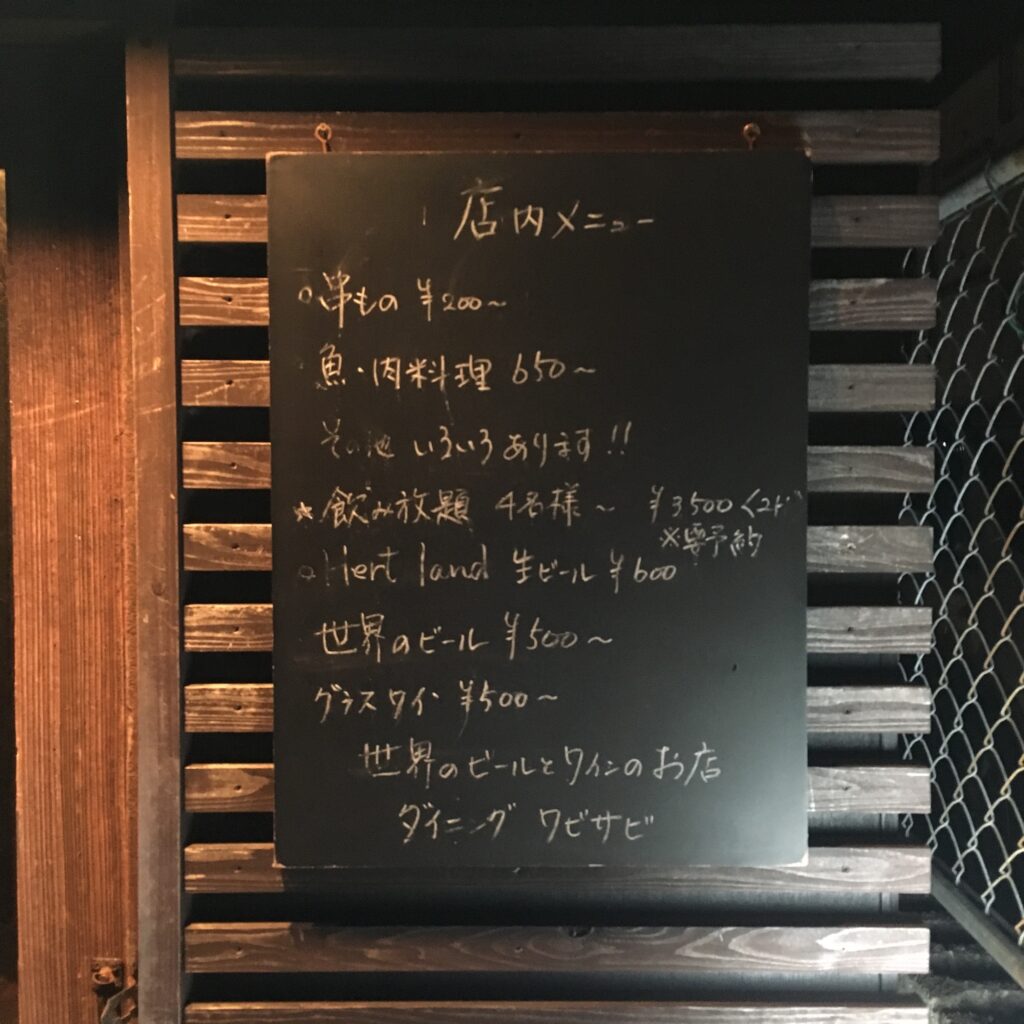 店内メニュー
○串もの ¥200~
魚・肉料理 650~
その他 いろいろあります!!
☆飲み放題 4名様~ ¥3500
※要予約
○Hert land 生ビール ¥600
世界のビール ¥500~
グラスワイン ¥500~
世界のビールとワインのお店
ダイニング ワビサビ